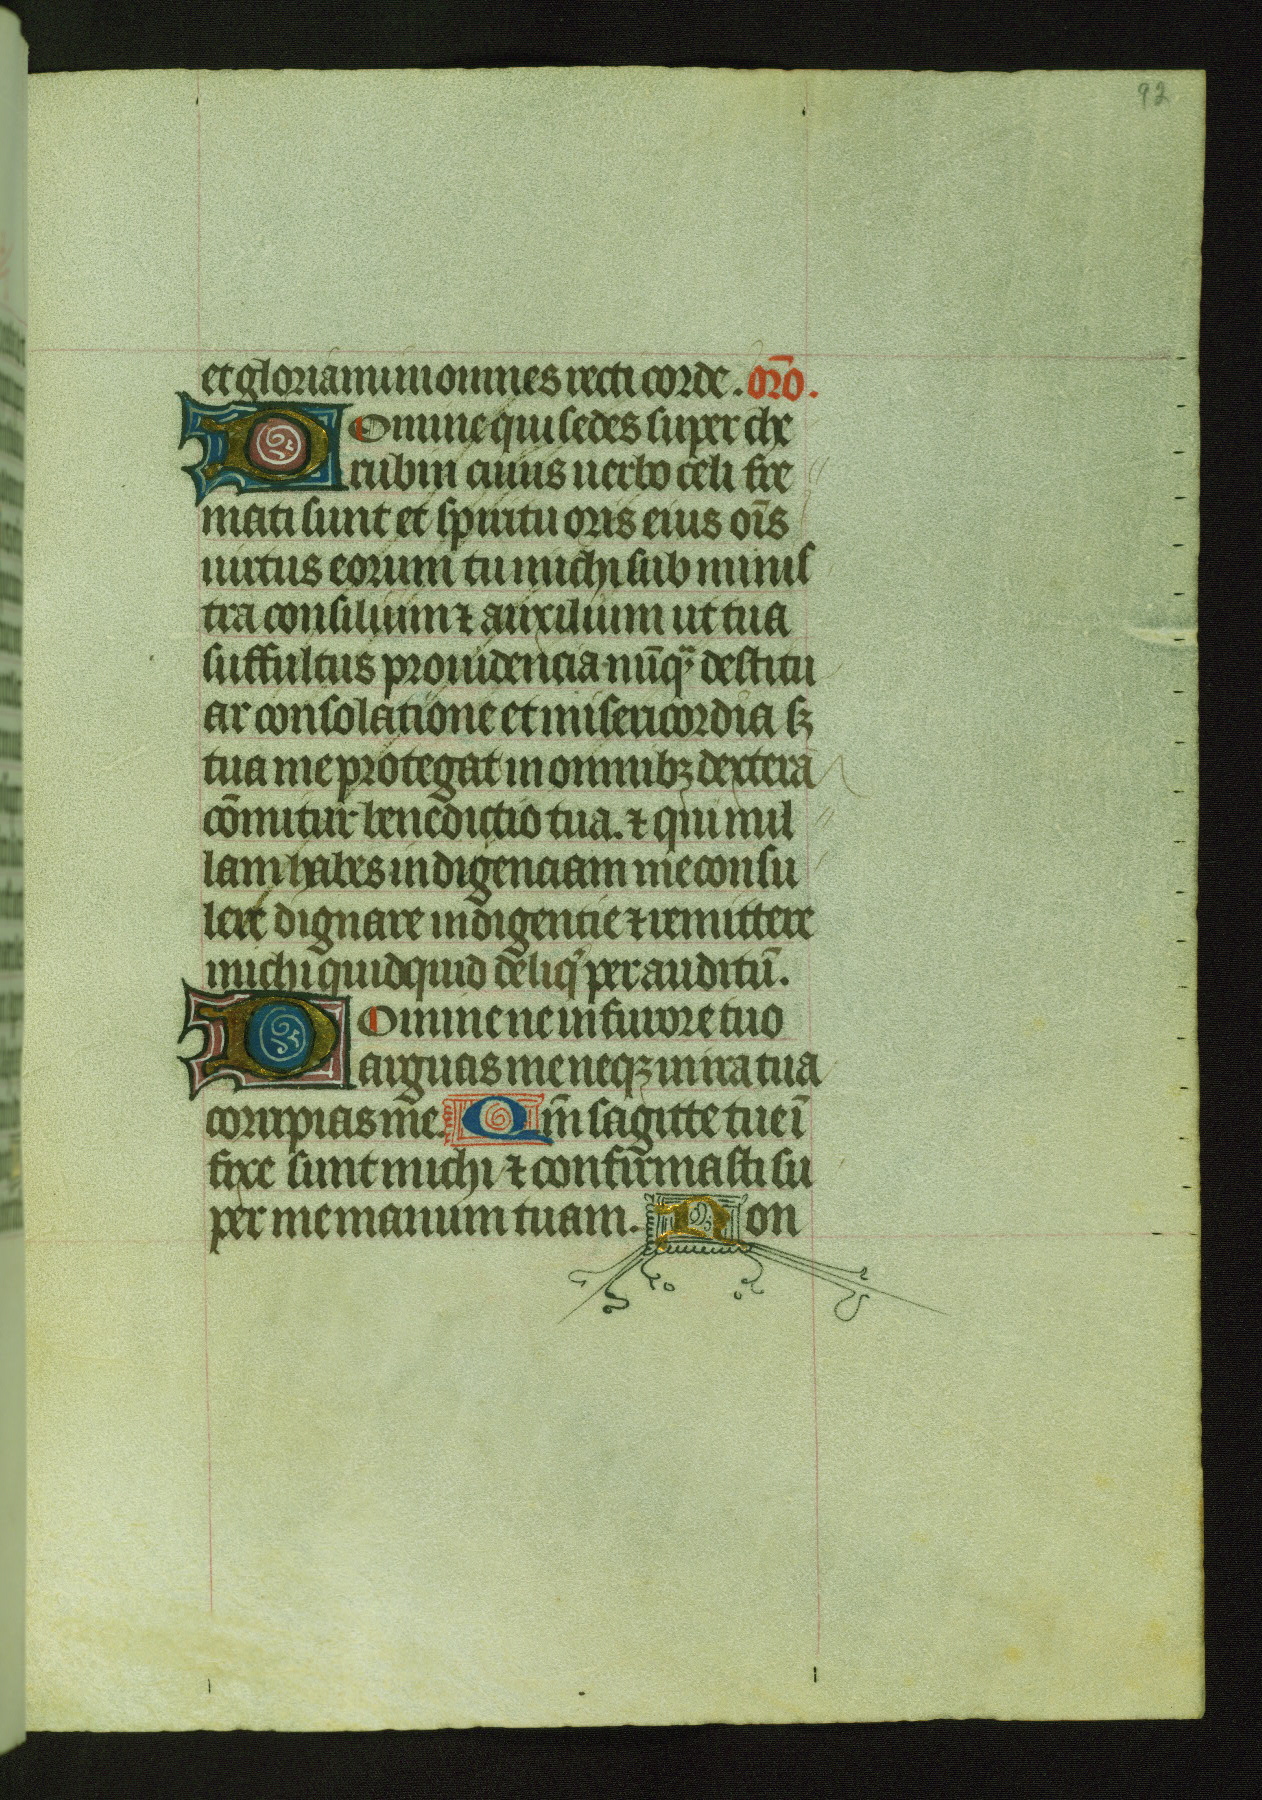 92
et gloriamini omnes recti corde. or̄o.
Domine qui sedes super che
rubin cuius uerbo celi fir
mati sunt et spiritu oris eius oı̄s
uirtus eorum tu michi sub minis
tra consilium ⁊ auxilium ut tua
suffultus prouidencia nūqᷓ destitu
ar consolatione et misericordia sꝫ
tua me protegat in omnibꝫ dextera
cōmitur benedictio tua. ⁊ qui nul
lam habes indigenciam me consu
lere dignare indigentie ⁊ remittere
michi quidquid deliq̓ per auditū.
Domine ne in furore tuo
arguas me neqꝫ in ira tua
corripias me. Qm̄ sagitte tue ī
fixe sunt michi ⁊ confirmasti su
per me manum tuam. Non